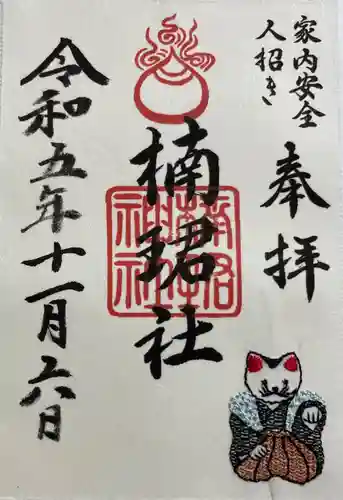 家内安全
人招き
奉拝
楠珺社
令和五年十一月六日